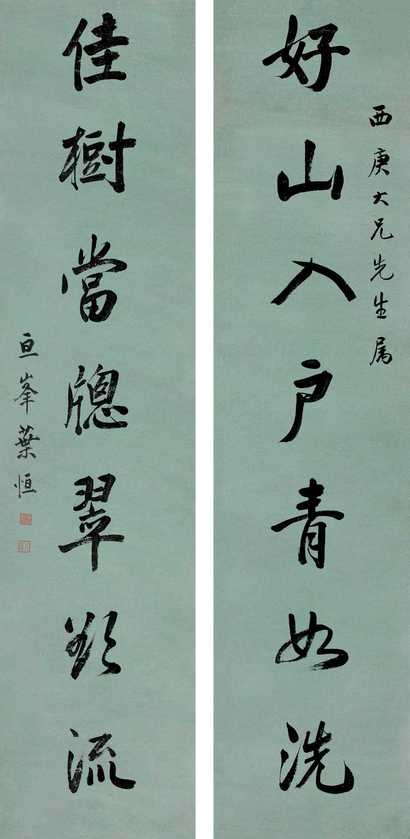 西庚大兄先生属
好山入户青如洗
佳樹當牕翠欲流
亘峯葉恒